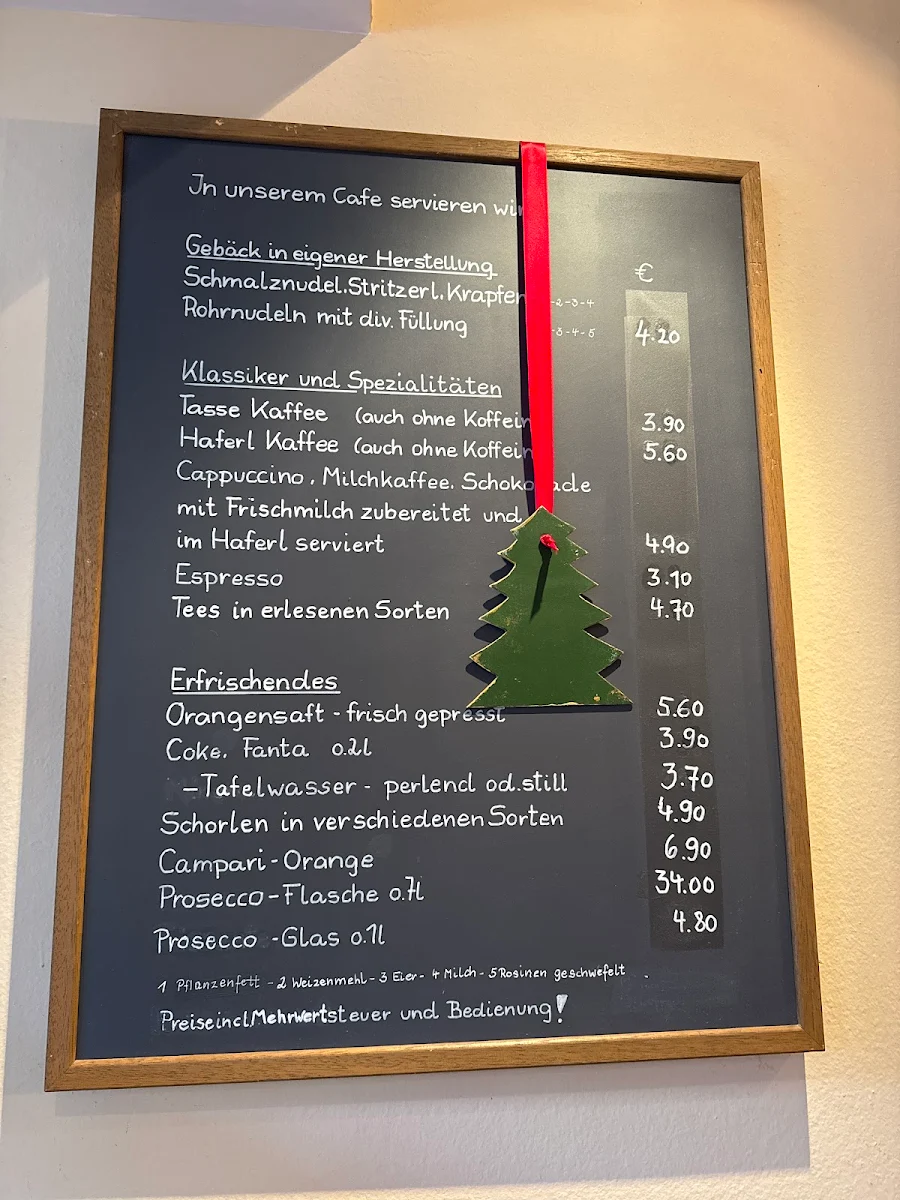 In unserem Cafe servieren wir
Gebäck in eigener Herstellung €
Schmalznudel.Stritzerl.Krapfen -2-3-4
Rohrnudeln mit div. Füllung -3-4-5 4.20
Klassiker und Spezialitäten
Tasse Kaffee (auch ohne Koffein 3.90
Haferl Kaffee (auch ohne Koffein 5.60
Cappuccino. Milchkaffee. Schokolade
mit Frischmilch zubereitet und
im Haferl serviert 4.90
Espresso 3.10
Tees in erlesenen Sorten 4.70
Erfrischendes
Orangensaft - frisch gepresst 5.60
Coke. Fanta 0.2l 3.90
-Tafelwasser - perlend od.still 3.70
Schorlen in verschiedenen Sorten 4.90
Campari-Orange 6.90
Prosecco-Flasche 0.7l 34.00
Prosecco -Glas 0.1l 4.80
1 Pflanzenfett - 2 Weizenmehl - 3 Eier - 4 Milch - 5 Rosinen geschwefelt
Preise incl. Mehrwertsteuer und Bedienung!